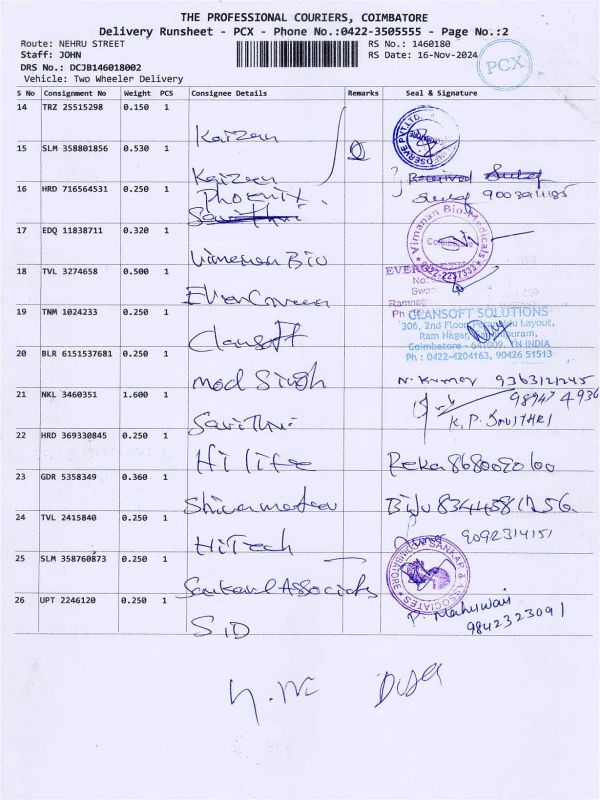 THE PROFESSIONAL COURIERS, COIMBATORE
Delivery Runsheet - PCX - Phone No.:0422-3505555 - Page No.:2
Route: NEHRU STREET RS No.: 1460180
Staff: JOHN RS Date: 16-Nov-2024
DRS No.: DCJB146018002
Vehicle: Two Wheeler Delivery
PCX
S No Consignment No Weight PCS Consignee Details Remarks Seal & Signature
14 TRZ 25515298 0.150 1 Kaizen
INFOSERVE PVT.LTD.
15 SLM 358801856 0.530 1 Kaizen
Received
16 HRD 716564531 0.250 1 Phoenix.
Savithri
17 EDQ 11838711 0.320 1 Vimanan Bio
Vimanan Bio-Medicals
Coimbatore
0422-2237333
18 TVL 3274658 0.500 1 Evercareen
EVER
No:
Swar
Ramnag
Ph
19 TNM 1024233 0.250 1 Clansoft
CLANSOFT SOLUTIONS
306, 2nd Floor, Layout,
Ram Nagar,
Coimbatore - 641009. TN INDIA
Ph : 0422-4204163, 90426 51513
20 BLR 6151537681 0.250 1 Mod Singh N. Kumar
21 NKL 3460351 1.600 1 Savithri
98947 4936
22 HRD 369330845 0.250 1 Hi life Reka
23 GDR 5358349 0.360 1 Biju
24 TVL 2415840 0.250 1 HiTech 9092314151
25 SLM 358760873 0.250 1 Sankar Associates
SANKAR & ASSOCIATES
COIMBATORE
26 UPT 2246120 0.250 1 SID
9842323091